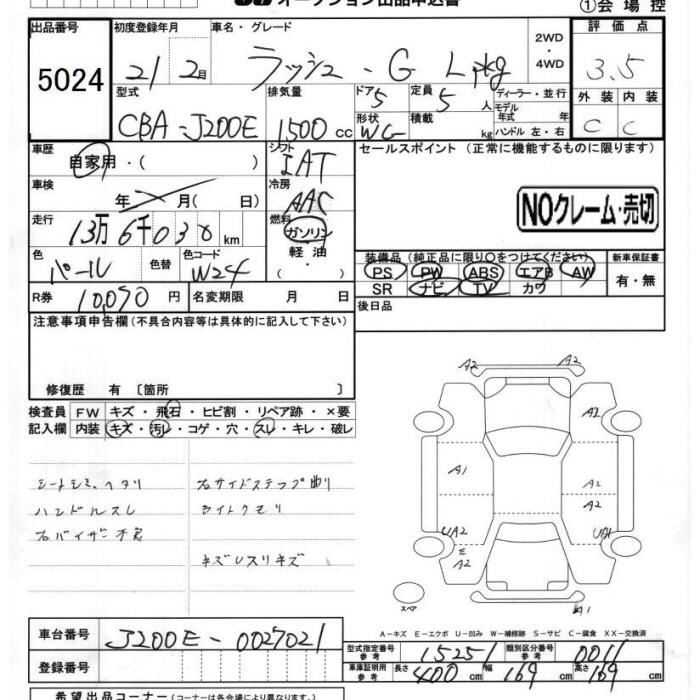 オークション出品申込書
①会場控
出品番号 初度登録年月 車名・グレード 2WD・4WD 評価点
5024 21 2月 ラッシュ・G Lpkg 3.5
型式 排気量 ドア 5 定員 5人 ディーラー・並行 外装 内装
CBA-J200E 1500cc 形状 WG 積載 kg モデル年式 年 ハンドル 左・右 C C
車歴 自家用・( ) シフト IAT セールスポイント (正常に機能するものに限ります)
車検 年 月(日) 冷房 AAC NOクレーム・売切
走行 13万6千030km 燃料 ガソリン 軽油
装備品 (純正品に限り○をつけてください) 新車保証書
色 パール 色替 色コード W24 PS PW ABS エアB AW 有・無
SR ナビ TV カワ
R券 10,070円 名変期限 月 日 後日品
注意事項申告欄(不具合内容等は具体的に記入して下さい)
修復歴 有 〔箇所 〕
検査員 FW キズ・飛石・ヒビ割・リペア跡・×要
記入欄 内装 キズ・汚レ・コゲ・穴・スレ・キレ・破レ
シートシミ、ヘタリ 右サイドステップ曲り
ハンドルスレ ライトクモリ
右バイザー不良
キズUスリキズ
A2 A2
A2 A1
A1 A2
A2
UA2 UA1
A2
スペア A1
A-キズ E-エクボ U-凹み W-補修跡 S-サビ C-腐食 XX-交換済
車台番号 J200E-0027021 型式指定番号 参考 15251 類別区分番号 参考 0011
登録番号 車庫証明用 参考 長さ 400cm 幅 169cm 高さ 169cm
希望出品コーナー(コーナーは各会場により異なります)